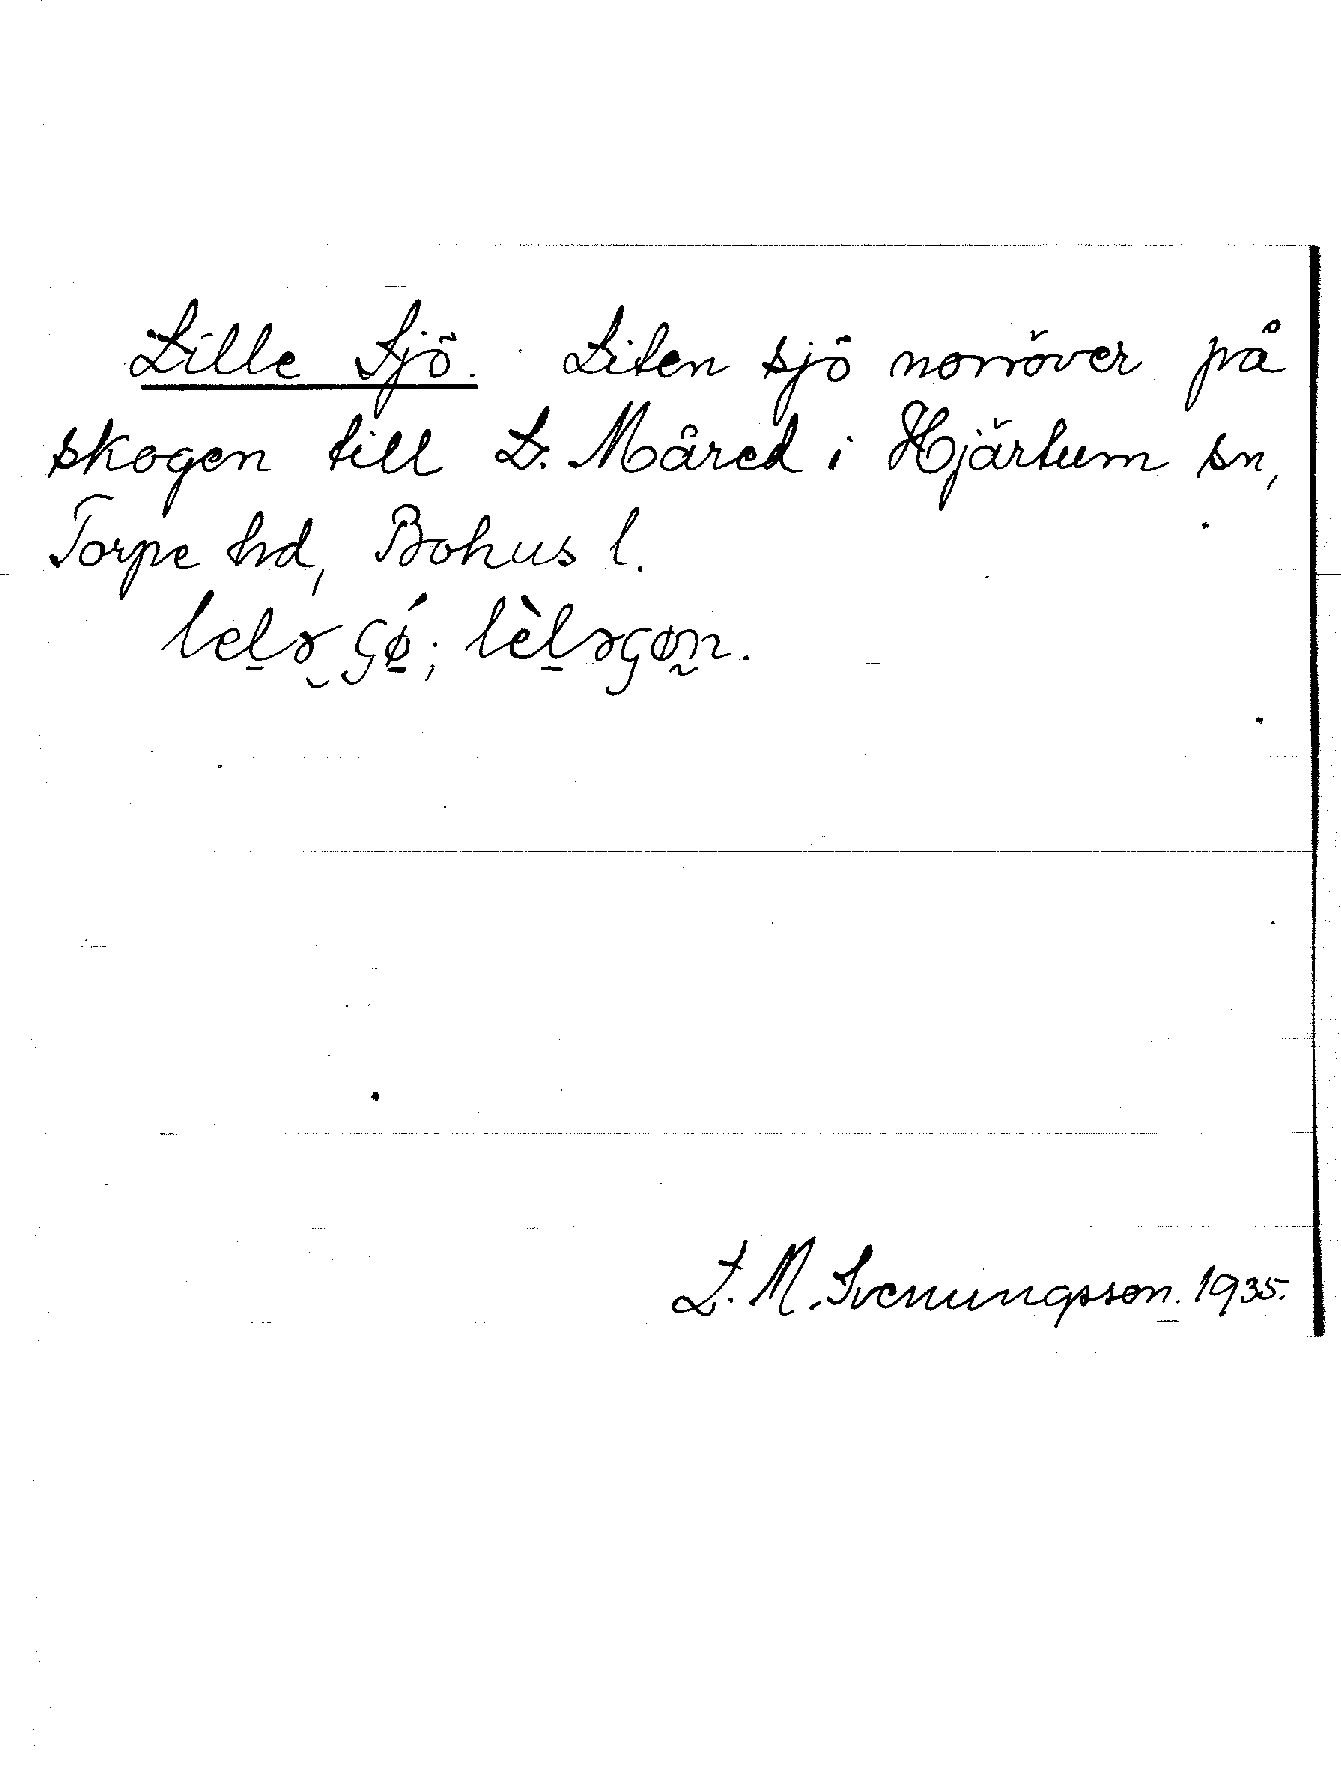 Lille Sjö. Liten sjö norröver på
skogen till L. Måred i Hjärtum sn,
Torpe hd, Bohus l.
lelə ʂǿ; lèləʂøn.
L. M. Svenungsson. 1935.